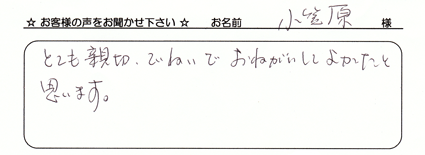 ☆ お客様の声をお聞かせ下さい ☆ お名前 小笠原 様
とても親切、ていねいで おねがいして よかったと
思います。